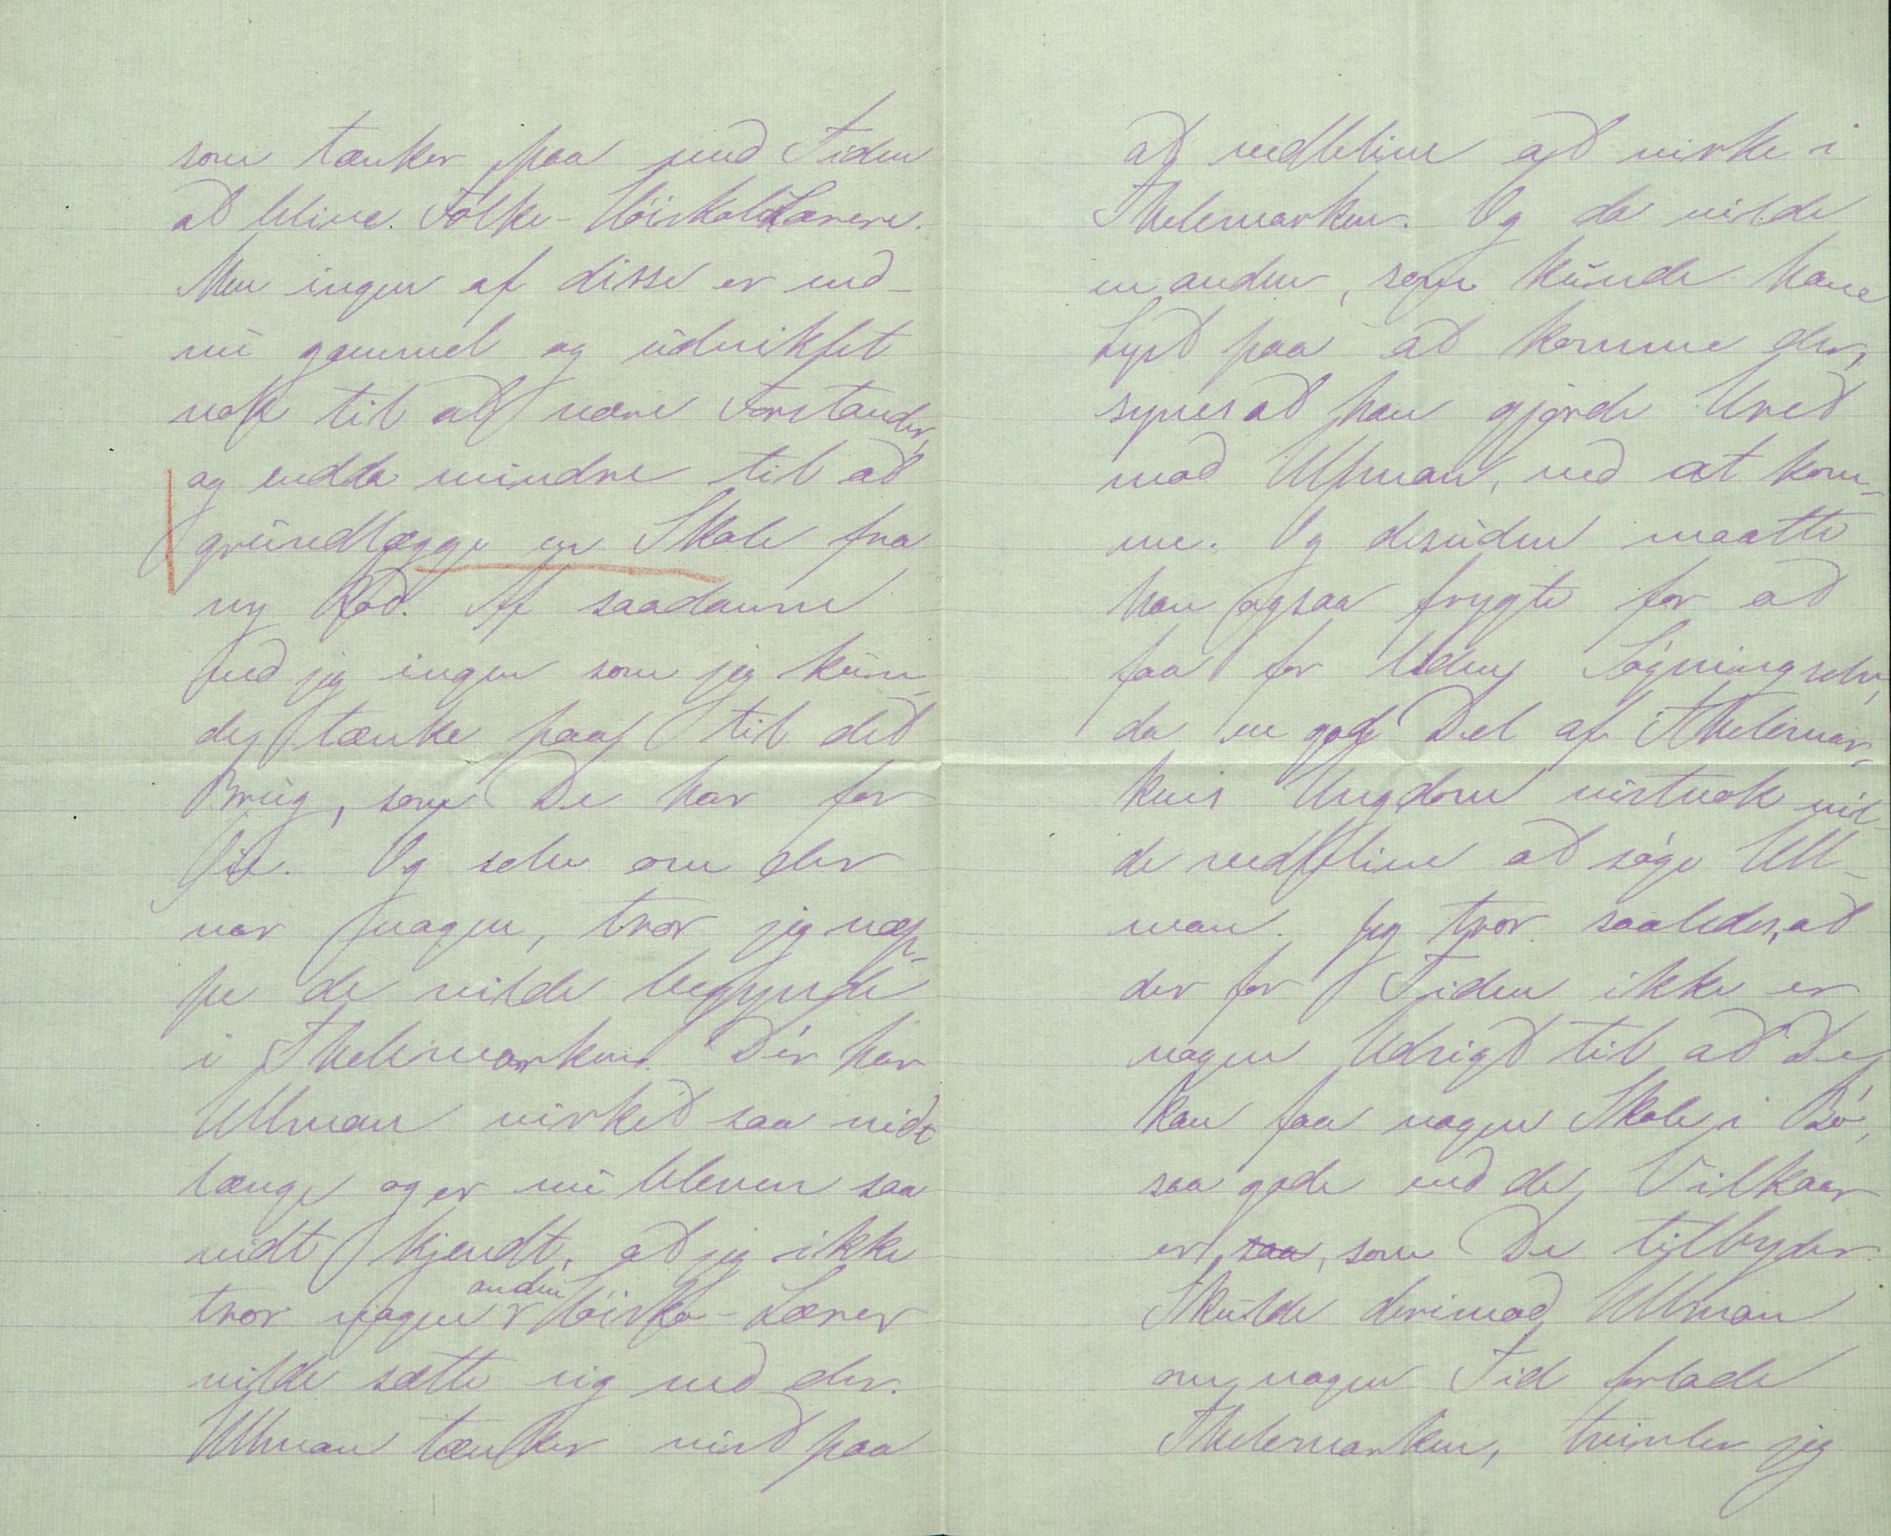 som tænker paa med Tiden
at blive Folke-Høiskolelærere.
Men ingen af disse er end-
nu gammel og udviklet
nok til at være Forstander,
og endda mindre til at
grundlægge en Skole fra
ny Rod. Af saadanne
ved jeg ingen som jeg kun-
de tænke paa til det
Brug, som De har for
Øie. Og selv om der
var nogen, tror jeg nep-
pe de vilde begynde
i Thelemarken. Dér har
Ullman virket saa vidt
længe og er nu bleven saa
vidt kjendt, at jeg ikke
tror nogen anden Høisko-Lærer
vilde sætte sig ned der.
Ullman tænker vist paa
at vedblive at virke i
Thelemarken. Og da vilde
en anden, som kunde have
Lyst paa at komme der,
synes at han gjorde Uret
mod Ullman, ved at kom-
me. Og desuden maatte
han ogsaa frygte for at
faa for liden Søgning selv,
da en god Del af Thelemar-
kens Ungdom vistnok vil-
de vedblive at søge Ull-
man. Jeg tror saaledes, at
der for Tiden ikke er
nogen Udsigt til at De
kan faa nogen Skole i Bø,
saa gode end de Vilkaar
er, saa, som De tilbyder.
Skulde derimod Ullman
om nogen Tid forlade
Thelemarken, tvivler jeg